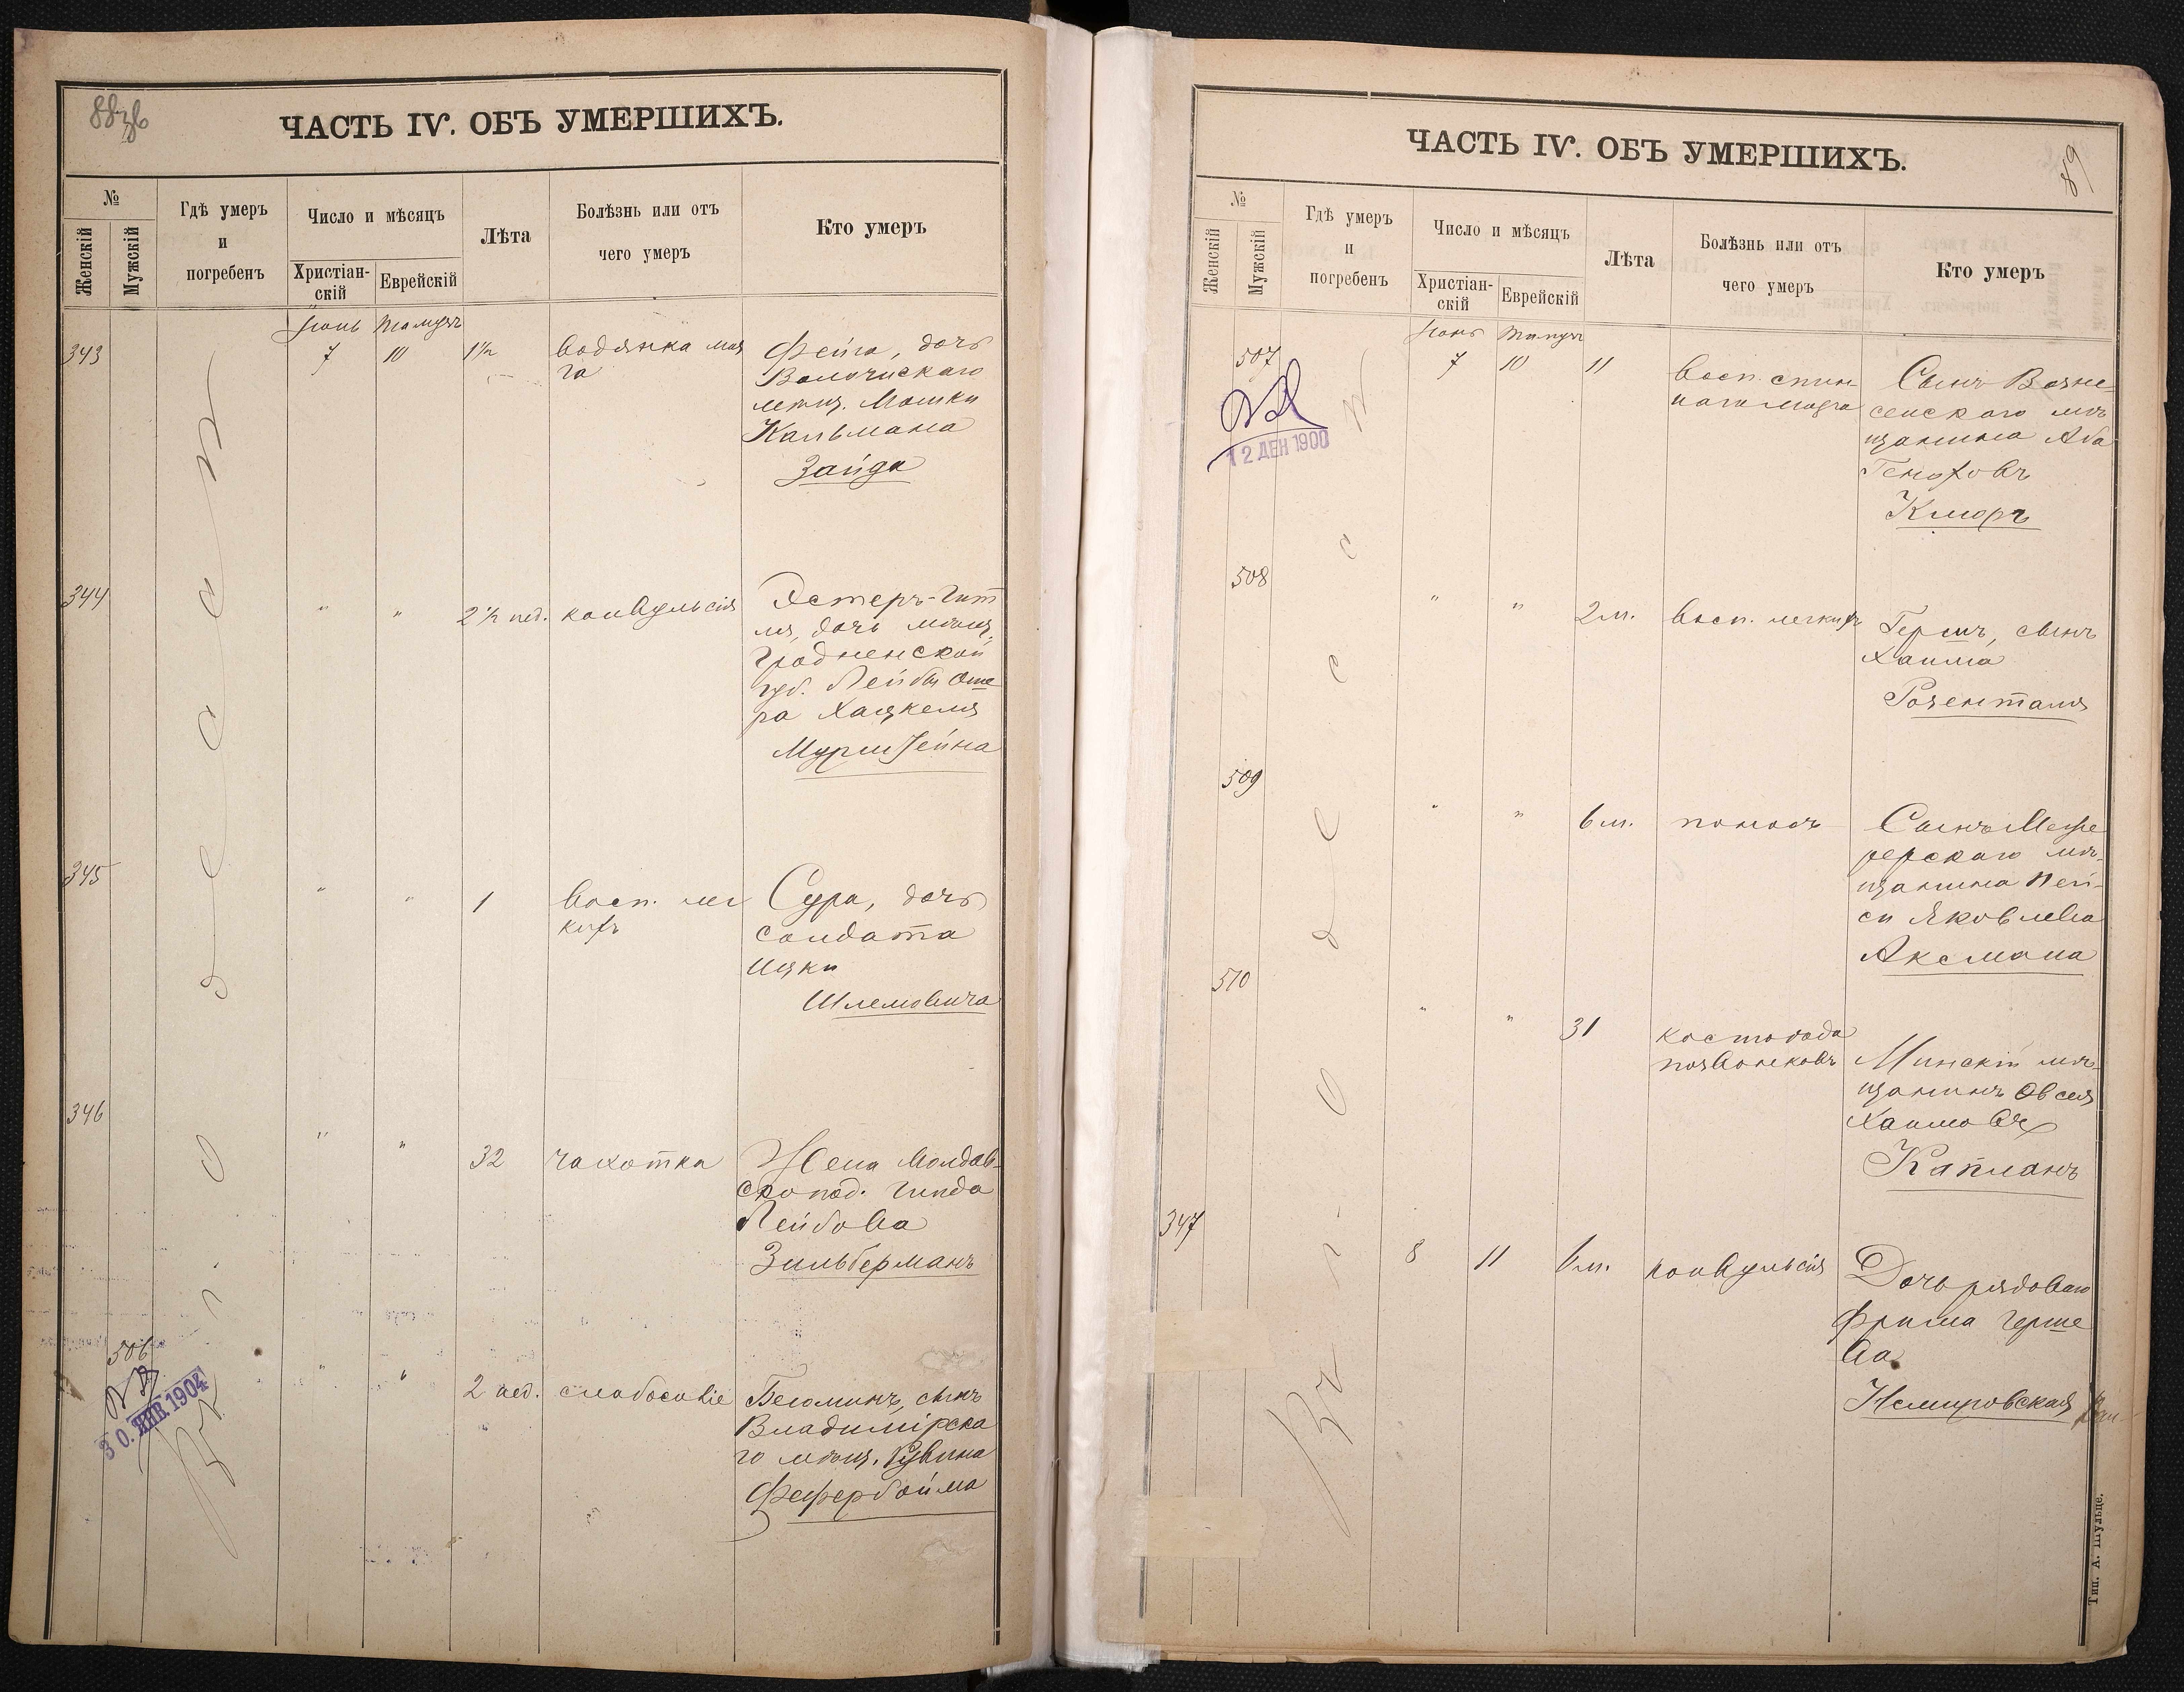 88 об
ЧАСТЬ IV. ОБЪ УМЕРШИХЪ.
№
Женскій
Мужскій
Гдѣ умеръ
и
погребенъ
Число и мѣсяцъ
Христіан-
скій
Еврейскій
Лѣта
Болѣзнь или отъ
чего умеръ
Кто умеръ
Въ г. Одессѣ
343
Іюнь Тамузъ
7 10 1½
водянка моз
га
Фейга, дочь
Волочискаго
мѣщ. Мошки
Кальмана
Зайда
344
" " 2½ нед. конвульсія
Эстеръ-Гит
ля, дочь мѣщ.
Гродненской
губ. Лейбы Оше
ра Хацкеля
345
" " 1
восп. лег
кихъ
Сура, дочь
солдата
Ицки
Шлемовича
346
" " 32 чахотка
Жена Молдав-
ско под. Гинда
Лейбова
Зильберманъ
506
30. ЯНВ. 1904
" " 2 нед. слабосиліе
Беюминъ, сынъ
Владимірска
го мѣщ. Рувина
Фефербойма
89
ЧАСТЬ IV. ОБЪ УМЕРШИХЪ.
№
Женскій
Мужскій
Гдѣ умеръ
и
погребенъ
Число и мѣсяцъ
Христіан-
скій
Еврейскій
Лѣта
Болѣзнь или отъ
чего умеръ
Кто умеръ
Въ г. Одессѣ
507
12 ДЕК 1900
Іюнь Тамузъ
7 10 11
восп. спин-
наго мозга
Сынъ Возне-
сенскаго мѣ
щанина Аба
Геноховъ
Клюръ
508
" " 2 м. восп. легкихъ
Гершъ, сынъ
Хаима
Розенталя
509
" " 6 м. поносъ
щанина Пей-
си Яковлева
Аксмана
510
" " 31
костоѣда
позвонковъ
Минскій мѣ-
щанинъ Овсей
Хаимовъ
Капланъ
347
8 11 6 м. конвульсія
Дочь рядоваго
Фроима Герше
ва
Немировская
Тип. А. Шульце.